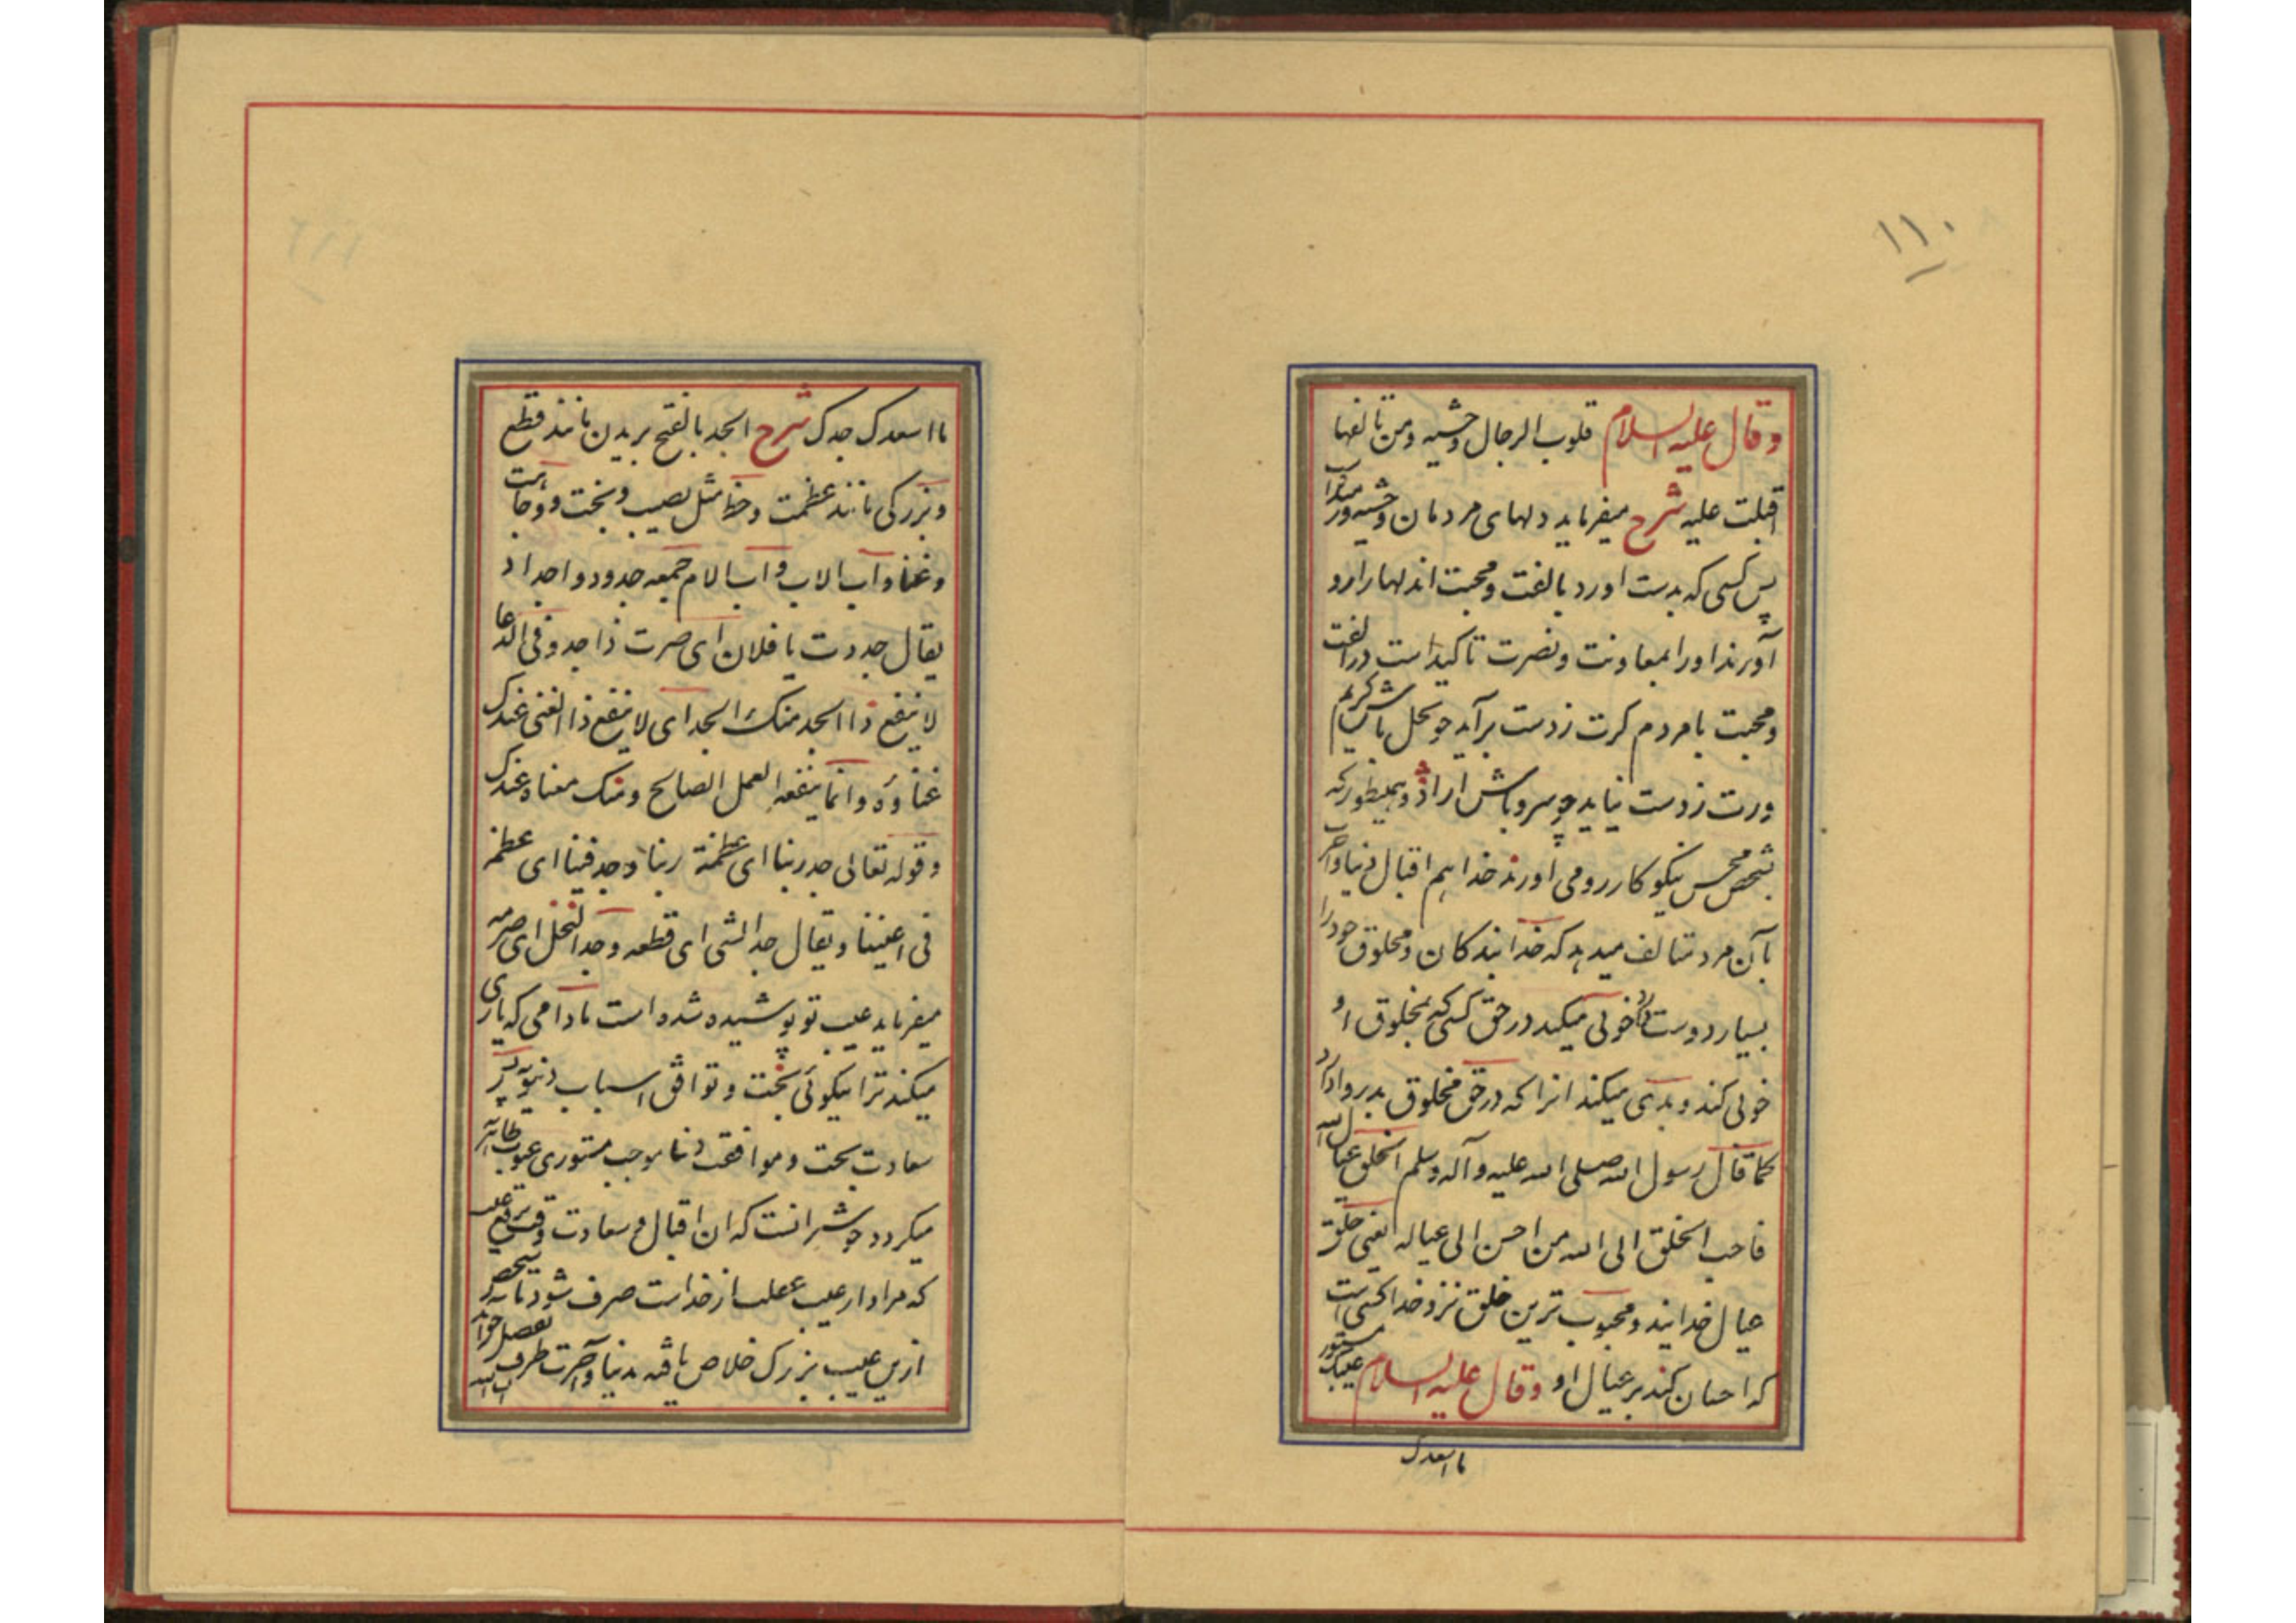 ۱۱۰
وقال علیه السلام قلوب الرجال وحشیه ومن تالفها
اقبلت علیه شرح میفرماید دلهای مردمان وحشیه ور میدارا
پس کسی که بدست اورد بالفت ومحبت اندلهارارو
آورند اورا بمعاونت ونصرت تاکیداست درالفت
ومحبت بامردم کرت زدست برآید چونخل باش کریم
ورت زدست نیاید چوسرو باش ازاد وهمیطورکه
بشخص محسن نیکوکار رومی اورند خداهم اقبال دنیا واخرت
بآن مرد متالف میدهد که خدا بندکان ومخلوق خودرا
بسیار دوست دارد خوبی میکند درحق کسی که بمخلوق او
خوبی کند و بدی میکند انراکه درحق مخلوق بد روادارد
کما قال رسول الله صلی الله علیه وآله وسلم الخلق عیال الله
فاحب الخلق الی الله من احسن الی عیاله یعنی خلق
عیال خدایند ومحبوب ترین خلق نزد خدا کسی است
که احسان کند بر عیال او وقال علیه السلام عیبک مستور
ما اسعدک
ما اسعدک جدک شرح الجد بالفتح بریدن مانند قطع
وبزرکی مانند عظمت وحظ مثل نصیب وبخت ووجاهت
وغنا وآب الاب واب الام جمعه جدود واجداد
یقال جددت یا فلان ای صرت ذا جد وفی الدعا
لا ینفع ذا الجد منک الجد ای لا ینفع ذا الغنی عندک
غناوه وانما ینفعه العمل الصالح ومنک معناه عندک
وقوله تعالی جد ربنا ای عظمة ربنا وجد فینا ای عظم
فی اعیننا ویقال جد الشی ای قطعه وجد النخل ای صرمه
میفرماید عیب تو پوشیده شده است مادامی که یاری
میکند ترا نیکوئی بخت و توافق اسباب دنیویه
سعادت بخت وموافقت دنیا موجب مستوری عیوب
میکردد انست که ان اقبال وسعادت
که مراد از عیب از خداست صرف شود
ازین عیب بزرک خلاص یافته بدنیا وآخرت طرف